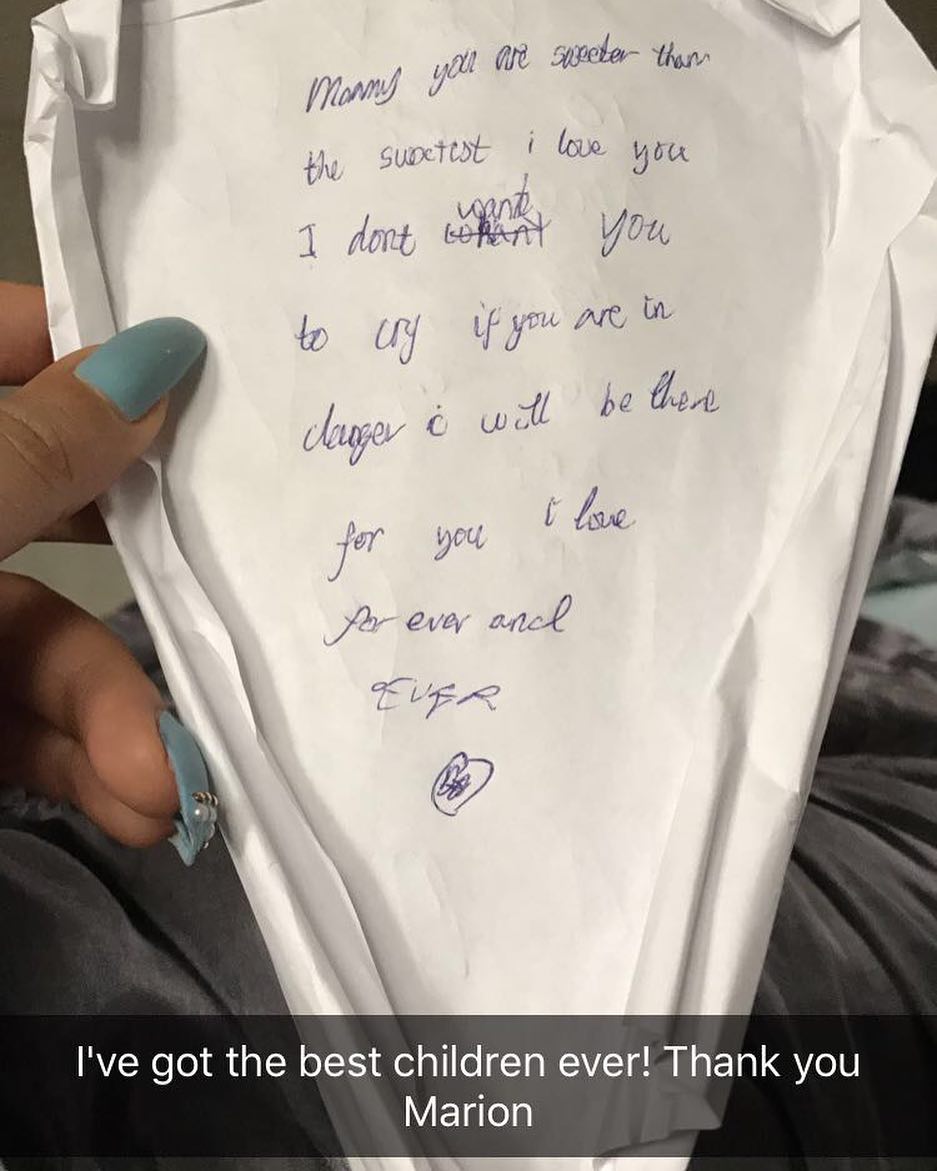 Mommy you are sweeter than
the sweetest i love you
I dont want you
to cry if you are in
danger i will be there
for you i love
for ever and
EVER
I've got the best children ever! Thank you
Marion